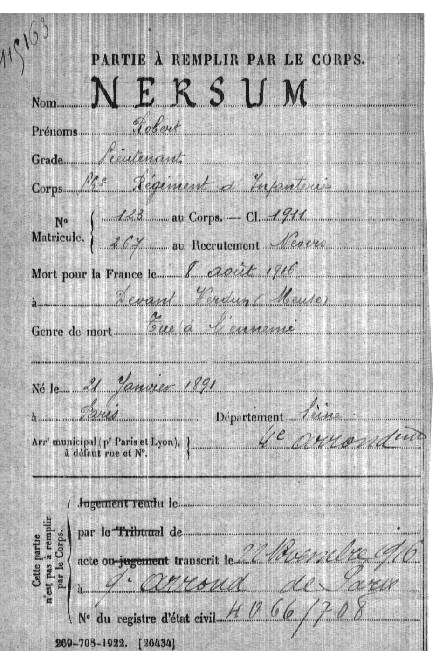 115163
PARTIE À REMPLIR PAR LE CORPS.
Nom NERSUM
Prénoms Robert
Grade Lieutenant
Corps Régiment d'Infanterie
Nº Matricule. { 123 au Corps. — Cl. 1911
267 au Recrutement Nevers
Mort pour la France le 8 août 1916
à Devant Verdun (Meuse)
Genre de mort Tué à l'ennemi
Né le 21 Janvier 1891
à Paris Département Seine
Arrt municipal (pr Paris et Lyon), à défaut rue et Nº. } 4e arrondmt
Cette partie n'est pas à remplir par le Corps.
Jugement rendu le
par le Tribunal de
acte ou jugement transcrit le 22 Novembre 1916
à 9e arrond de Paris
Nº du registre d'état civil 4066/708
269-708-1922. [26434]